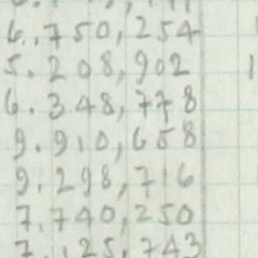 6.,750,254
5.208,902
6.348,778
9.910,658
9.298,716
7.740,250